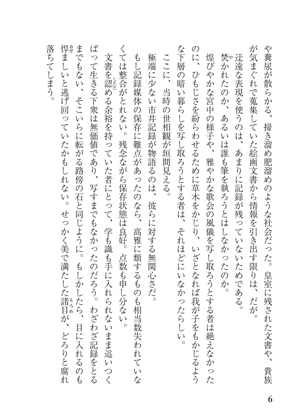 や糞尿が散らかる、掃き溜め肥溜めのような社会だった。皇室に残された文書や、貴族
が気まぐれで蒐集していた絵画文書から情報を引き出す限りは、だが。
迂遠な表現を使うのは、あまりに記録が残っていないためである。
焚かれたのか、あるいは誰も筆を執ろうとはしなかったのか。
煌びやかな宮中の様子や、雅やかな歌会の風儀を写し取ろうとする者は絶えなかった
のに、ひもじさを紛らわせるために草木をかじり、いざとなれば我が子をもかじるよう
な下層の暗い暮らしを写し取ろうとする者は、それほどにいなかったらしい。
ここに、当時の世相観が垣間見える。
極端に少ない市井記録が物語るのは、彼らに対する無関心さだ。
もし記録媒体の保存に難点があったのなら、高雅に類するものも相当数失われていな
くては整合がとれない。残念ながら保存状態は良好。点数も申し分ない。
文書を認める余裕を持っていた者にとって、学も識も手に入れられないまま這いつく
ばって生きる下衆は無価値であり、写すまでもなかったのだろう。わざわざ記録をとる
までもない、そこいらに転がる路傍の石と同じように。もしかしたら、目に入れるのも
悍ましいと逃げ回っていたかもしれない。せっかく美で満たした諸目が、どろりと腐れ
落ちてしまう。
6